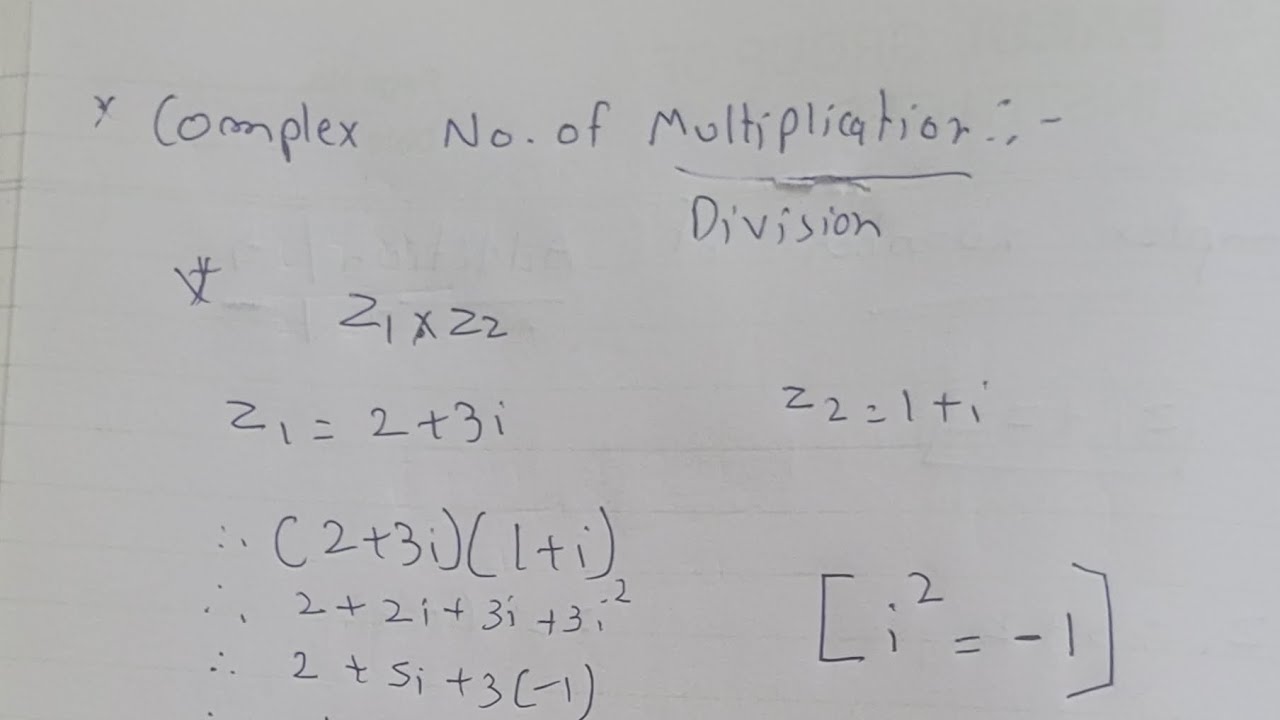 * Complex No. of Multiplication :-
Division
* Z1 x Z2
Z1 = 2+3i
Z2 = 1+i
∴ (2+3i)(1+i)
∴ 2+2i+3i+3i²
[i² = -1]
∴ 2+5i+3(-1)